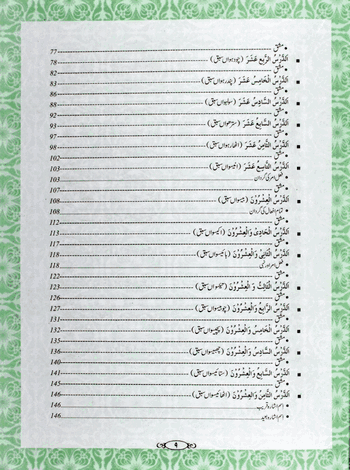 مشق 77
اَلدَّرْسُ الرَّابِعَ عَشَرَ (چودہواں سبق) 78
مشق 82
اَلدَّرْسُ الْخَامِسَ عَشَرَ (پندرہواں سبق) 83
مشق 86
اَلدَّرْسُ السَّادِسَ عَشَرَ (سولہواں سبق) 88
مشق 92
اَلدَّرْسُ السَّابِعَ عَشَرَ (سترھواں سبق) 93
مشق 97
اَلدَّرْسُ الثَّامِنَ عَشَرَ (اٹھارہواں سبق) 98
مشق 102
اَلدَّرْسُ التَّاسِعَ عَشَرَ (انیسواں سبق) 103
فعل امر کی گردان 103
مشق 107
اَلدَّرْسُ الْعِشْرُوْنَ (بیسواں سبق) 108
تمام افعال کی گردان 108
مشق 112
اَلدَّرْسُ الْحَادِیْ وَالْعِشْرُوْنَ (اکیسواں سبق) 113
مشق 117
اَلدَّرْسُ الثَّانِیْ وَالْعِشْرُوْنَ (بائیسواں سبق) 118
فعل امر اور نہی 118
مشق 122
اَلدَّرْسُ الثَّالِثُ وَالْعِشْرُوْنَ (تئیسواں سبق) 123
مشق 126
اَلدَّرْسُ الرَّابِعُ وَالْعِشْرُوْنَ (چوبیسواں سبق) 127
مشق 131
اَلدَّرْسُ الْخَامِسُ وَالْعِشْرُوْنَ (پچیسواں سبق) 132
مشق 135
اَلدَّرْسُ السَّادِسُ وَالْعِشْرُوْنَ (چھبیسواں سبق) 136
مشق 140
اَلدَّرْسُ السَّابِعُ وَالْعِشْرُوْنَ (ستائیسواں سبق) 141
مشق 145
اَلدَّرْسُ الثَّامِنُ وَالْعِشْرُوْنَ (اٹھائیسواں سبق) 146
اسم اشارہ قریب 146
اسم اشارہ بعید 146